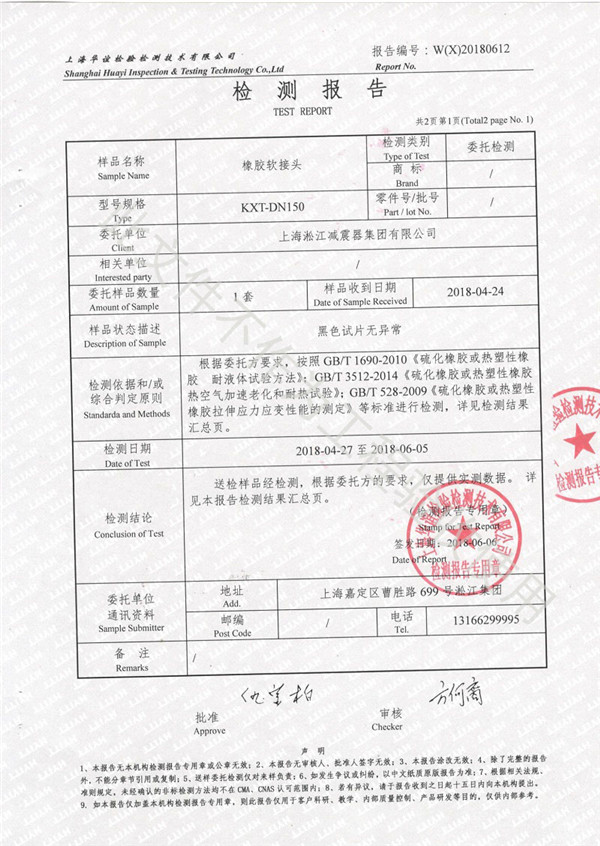 上海华谊检验检测技术有限公司
Shanghai Huayi Inspection & Testing Technology Co.,Ltd
报告编号：W(X)20180612
Report No.
检测报告
TEST REPORT
共2页第1页(Total2 page No. 1)
样品名称
Sample Name
橡胶软接头
检测类别
Type of Test
委托检测
商标
Brand
/
型号规格
Type
KXT-DN150
零件号/批号
Part / lot No.
/
委托单位
Client
上海淞江减震器集团有限公司
相关单位
Interested party
/
委托样品数量
Amount of Sample
1套
样品收到日期
Date of Sample Received
2018-04-24
样品状态描述
Description of Sample
黑色试片无异常
检测依据和/或
综合判定原则
Standarda and Methods
根据委托方要求，按照 GB/T 1690-2010《硫化橡胶或热塑性橡
胶 耐液体试验方法》；GB/T 3512-2014《硫化橡胶或热塑性橡胶
热空气加速老化和耐热试验》；GB/T 528-2009《硫化橡胶或热塑性
橡胶拉伸应力应变性能的测定》等标准进行检测，详见检测结果
汇总页。
检测日期
Date of Test
2018-04-27 至 2018-06-05
检测结论
Conclusion of Test
送检样品经检测，根据委托方的要求，仅提供实测数据。 详
见本报告检测结果汇总页。
（检测报告专用章）
Stamp for Test Report
签发日期：2018-06-06
Date of Report
检测报告专用章
委托单位
通讯资料
Sample Submitter
地址
Add.
上海嘉定区曹胜路 699 号淞江集团
邮编
Post Code
/
电话
Tel.
13166299995
备 注
Remarks
/
批准
Approve
审核
Checker
声 明
1、本报告无本机构检测报告专用章或公章无效；2、本报告无审核人、批准人签字无效；3、本报告涂改无效；4、除了完整的报告
外，不能分章节引用或复制；5、送样委托检测仅对来样负责；6、如发生争议或纠纷，以中文纸质原版报告为准；7、根据相关法规、
准则规定，未经确认的非标检测方法均不在 CMA、CNAS 认可范围内；8、若有异议，请于报告收到之日起十五日内向本机构提出。
9、如本报告仅加盖本机构检测报告专用章，则此报告仅用于客户科研、教学、内部质量控制、产品研发等目的，仅供内部参考。